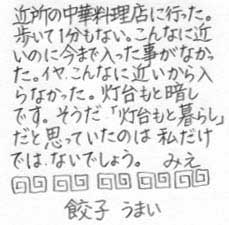 近所の中華料理店に行った。
歩いて1分もない。こんなに近
いのに今まで入った事がなかっ
た。イヤ、こんなに近いから入
らなかった。灯台もと暗し
です。そうだ「灯台もと暮らし」
だと思っていたのは私だけ
では、ないでしょう。 みえ
餃子 うまい